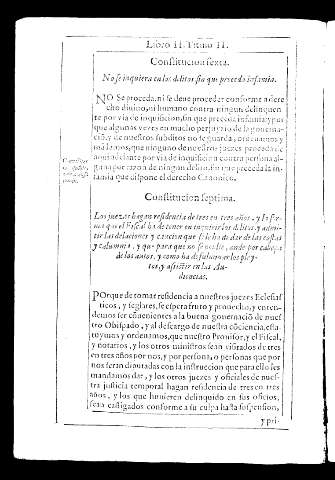 Libro II. Titulo II.
Constitucion sexta.
No se inquiera en los delitos sin que preceda infamia.
NO Se proceda, ni se deue proceder conforme a dere
cho diuino, ni humano contra ningun delinquen
te por via de inquisicion, sin que preceda infamia; y por
que algunas vezes en mucho perjuyzio de la gouerna-
ció, y de nuestros subditos no se guarda, ordenamos y
mādamos, que ninguno de nuestros juezes proceda de
aqui adelante por via de inquisicion contra persona al-
guna por razon de ningun delito, sin que preceda la in-
famia que dispone el derecho Canonico.
Constitucion septima.
Los juezes hagan residencia de tres en tres años, y la for-
ma que el Fiscal ha de tener en
y calumnia, y que para que no se
de los autos, y como ha de
tos, y assistir en las Au-
diencias.
PORque de tomar residencia a nuestros juezes Eclesias
ticos, y seglares, se espera fruto y prouecho, y enten-
demos ser cōuenientes a la buena gouernació de nues
tro Obispado, y al descargo de nuestra cōciencia, esta
tuymos y ordenamos, que nuestro Prouisor, y el Fiscal,
y notarios, y los otros ministros sean visitados de tres
en tres años por nos, y por persona, o personas que por
nos seran diputadas con la instruccion que para ello les
mandamos dar, y los otros juezes y oficiales de nues-
tra justicia temporal hagan residencia de tres en tres
años, y los que huuieren delinquido en sus oficios,
sean castigados conforme a su culpa hasta suspension,
y pri-